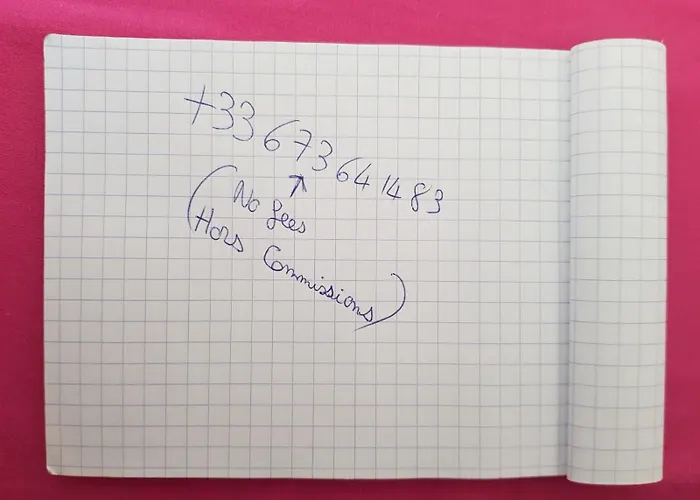 +33 673 64 14 83
(No fees
Hors Commissions)